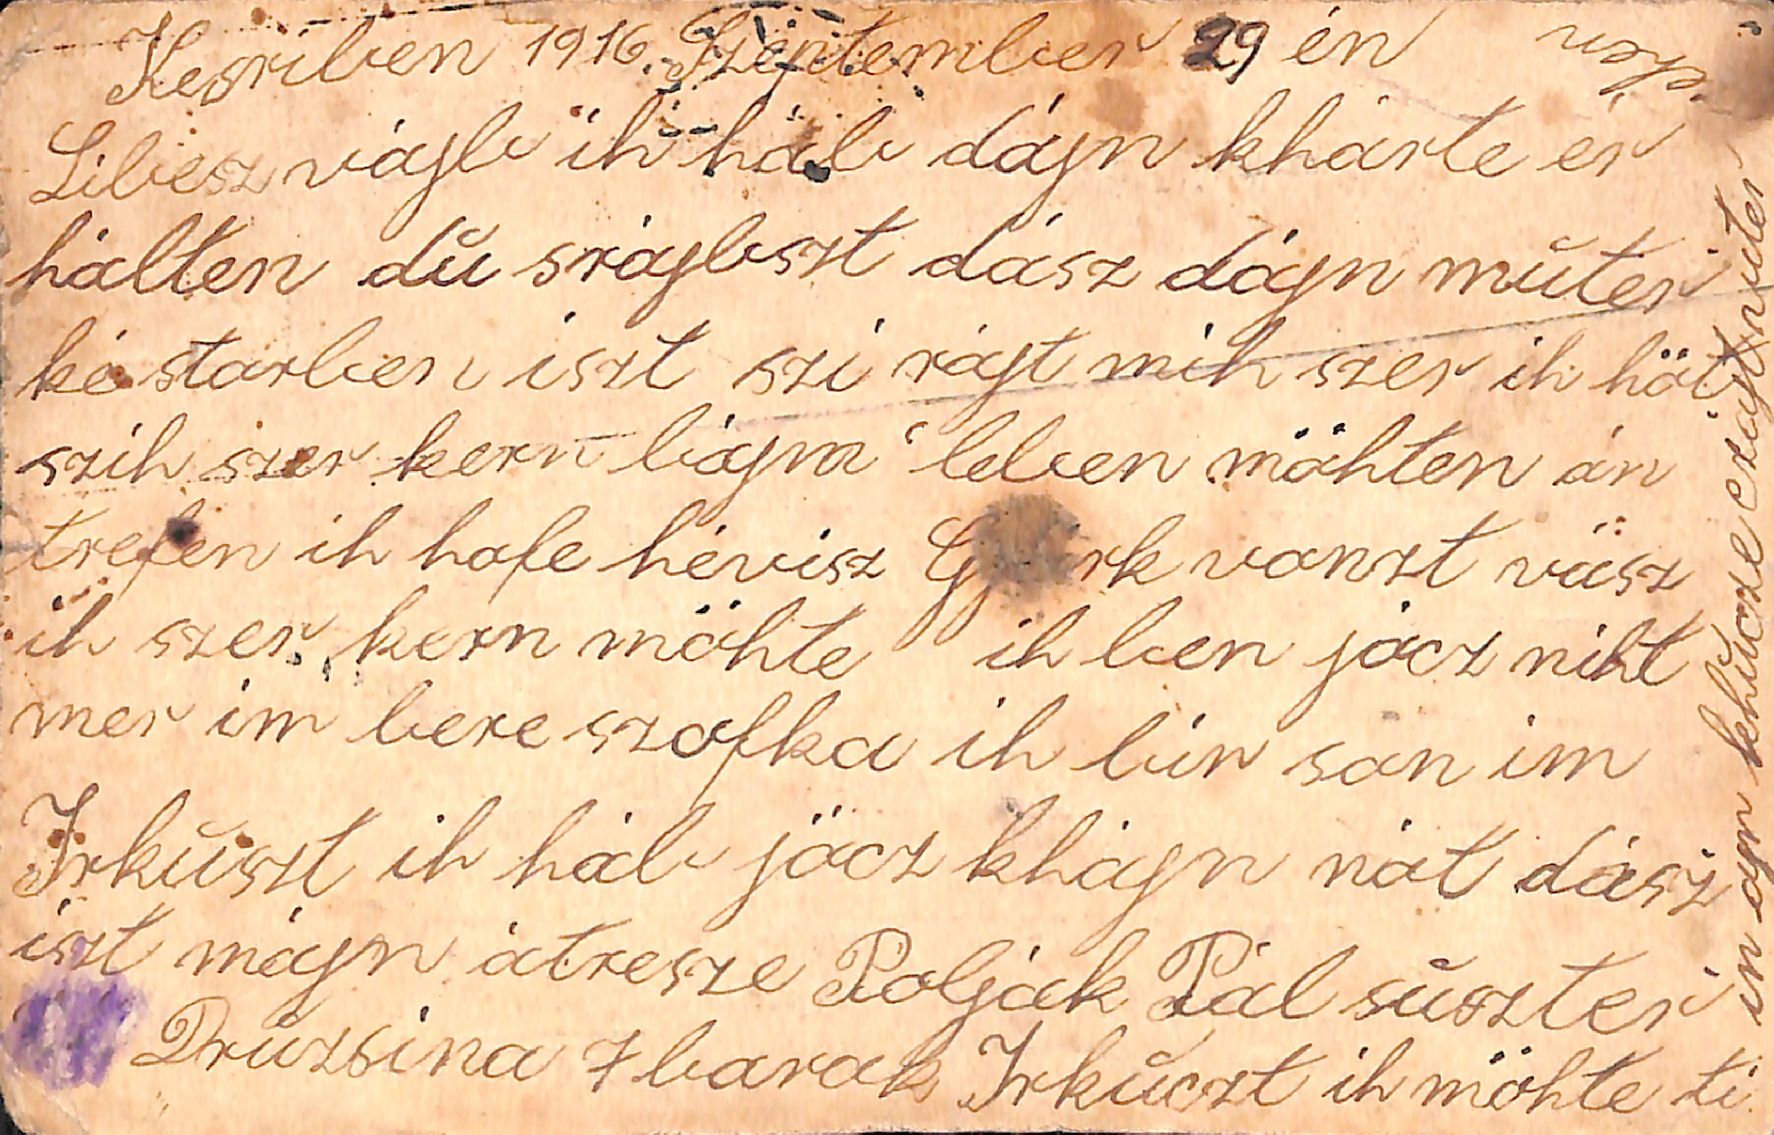 Kesriben 1916. Szeptember 29 én
Libesz vájb ih háb dájn khárte ér
hálten du srájbszt dász dájn muter
ké starben iszt szi rájt mih szer ih hät
szih szer kern bájm leben möhten án
trefen ih hofe hévisz vonszt vász
ih szer kern möhte ih ben jäcz niht
mer im bereszofka ih bin son im
Irkuszt ih háb jäcz khájn nát dász
iszt májn átresze Polják Pál suszter
Druzsina 7 barak Irkuczt ih möhte ti
in ájn khucze czájt muter